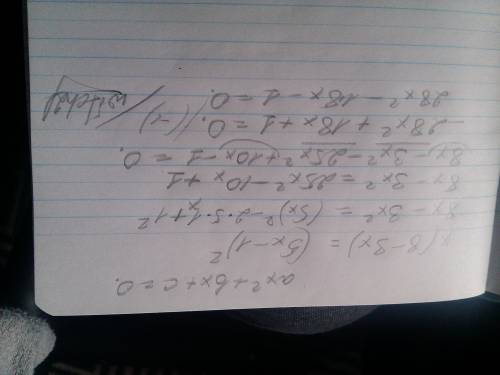 ax² + bx + c = 0.
x(8 - 3x) = (5x - 1)²
8x - 3x² = (5x)² - 2·5·1x + 1²
8x - 3x² = 25x² - 10x + 1
8x - 3x² - 25x² + 10x - 1 = 0.
-28x² + 18x + 1 = 0. /·(-1)
28x² - 18x - 1 = 0.